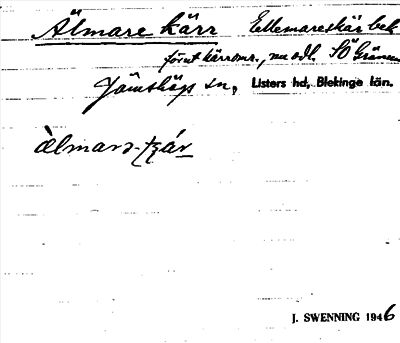 Älmare kärr Ellemareskär bek
förut kärromr., nu odl. SÖ Gränum
Jämshögs sn, Listers hd, Blekinge län.
àlmara-tʒár
J. SWENNING 1946